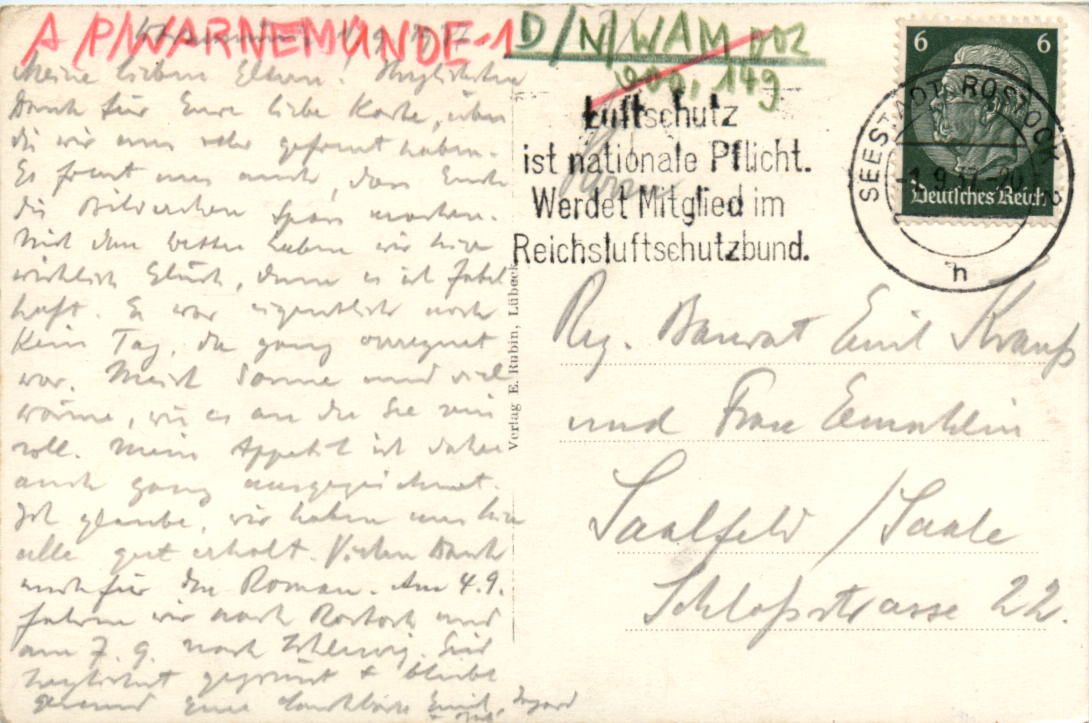 A P/WARNEMÜNDE-1 D/N/WAM 002
149
1.9.1937
Meine lieben Eltern! Herzlichsten
Dank für Eure liebe Karte, über
die wir uns sehr gefreut haben.
Es freut uns auch, dass Euch
die Bilderchen Spass machen.
Mit dem Wetter haben wir hier
wirklich Glück, denn es ist fabel
haft. Es war eigentlich noch
kein Tag, der ganz verregnet
war. Meist Sonne und viel
Wärme, wie es an der See sein
soll. Mein Appetit ist daher
auch ganz ausgezeichnet.
Ich glaube, wir haben uns hier
alle gut erholt. Vielen Dank
auch für den Roman. Am 4.9.
fahren wir nach Rostock und
am 7.9. nach Schleswig. Seid
herzlichst gegrüsst + bleibt
gesund Eure dankbare
Verlag E. Rubin, Lübeck
Luftschutz
ist nationale Pflicht.
Werdet Mitglied im
Reichsluftschutzbund.
6 6
Deutsches Reich
SEESTADT ROSTOCK 2
-1.9.
h
Reg. Baurat Emil Krauß
und Frau Gemahlin
Saalfeld / Saale
Schloßstrasse 22.